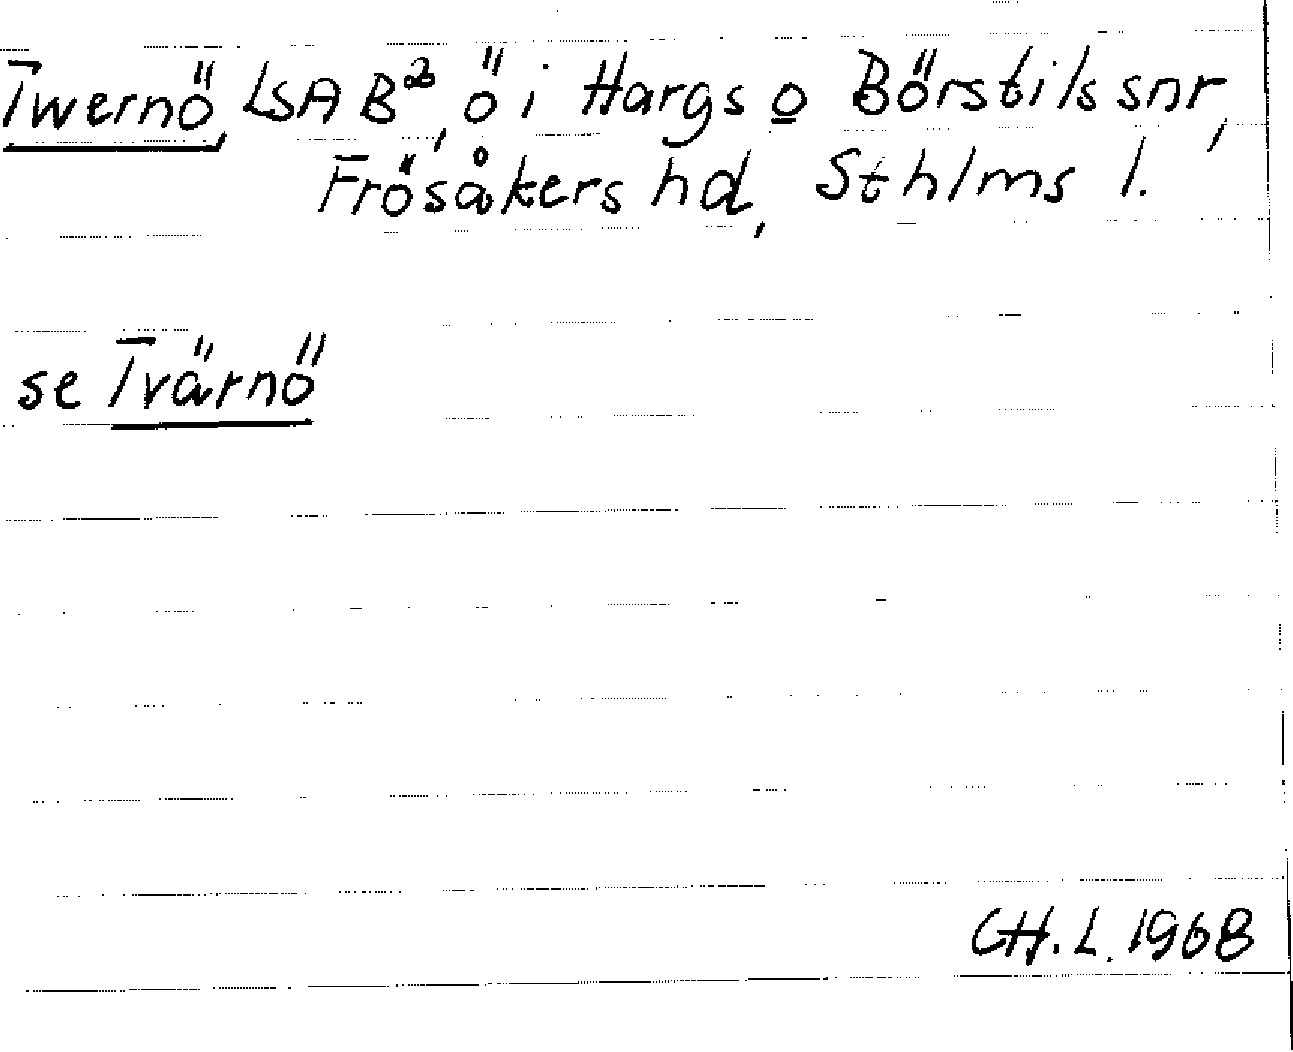 Twernö, LSA B², ö i Hargs o Börstils snr,
Frösåkers hd, Sthlms l.
se Tvärnö
CH. L. 1968